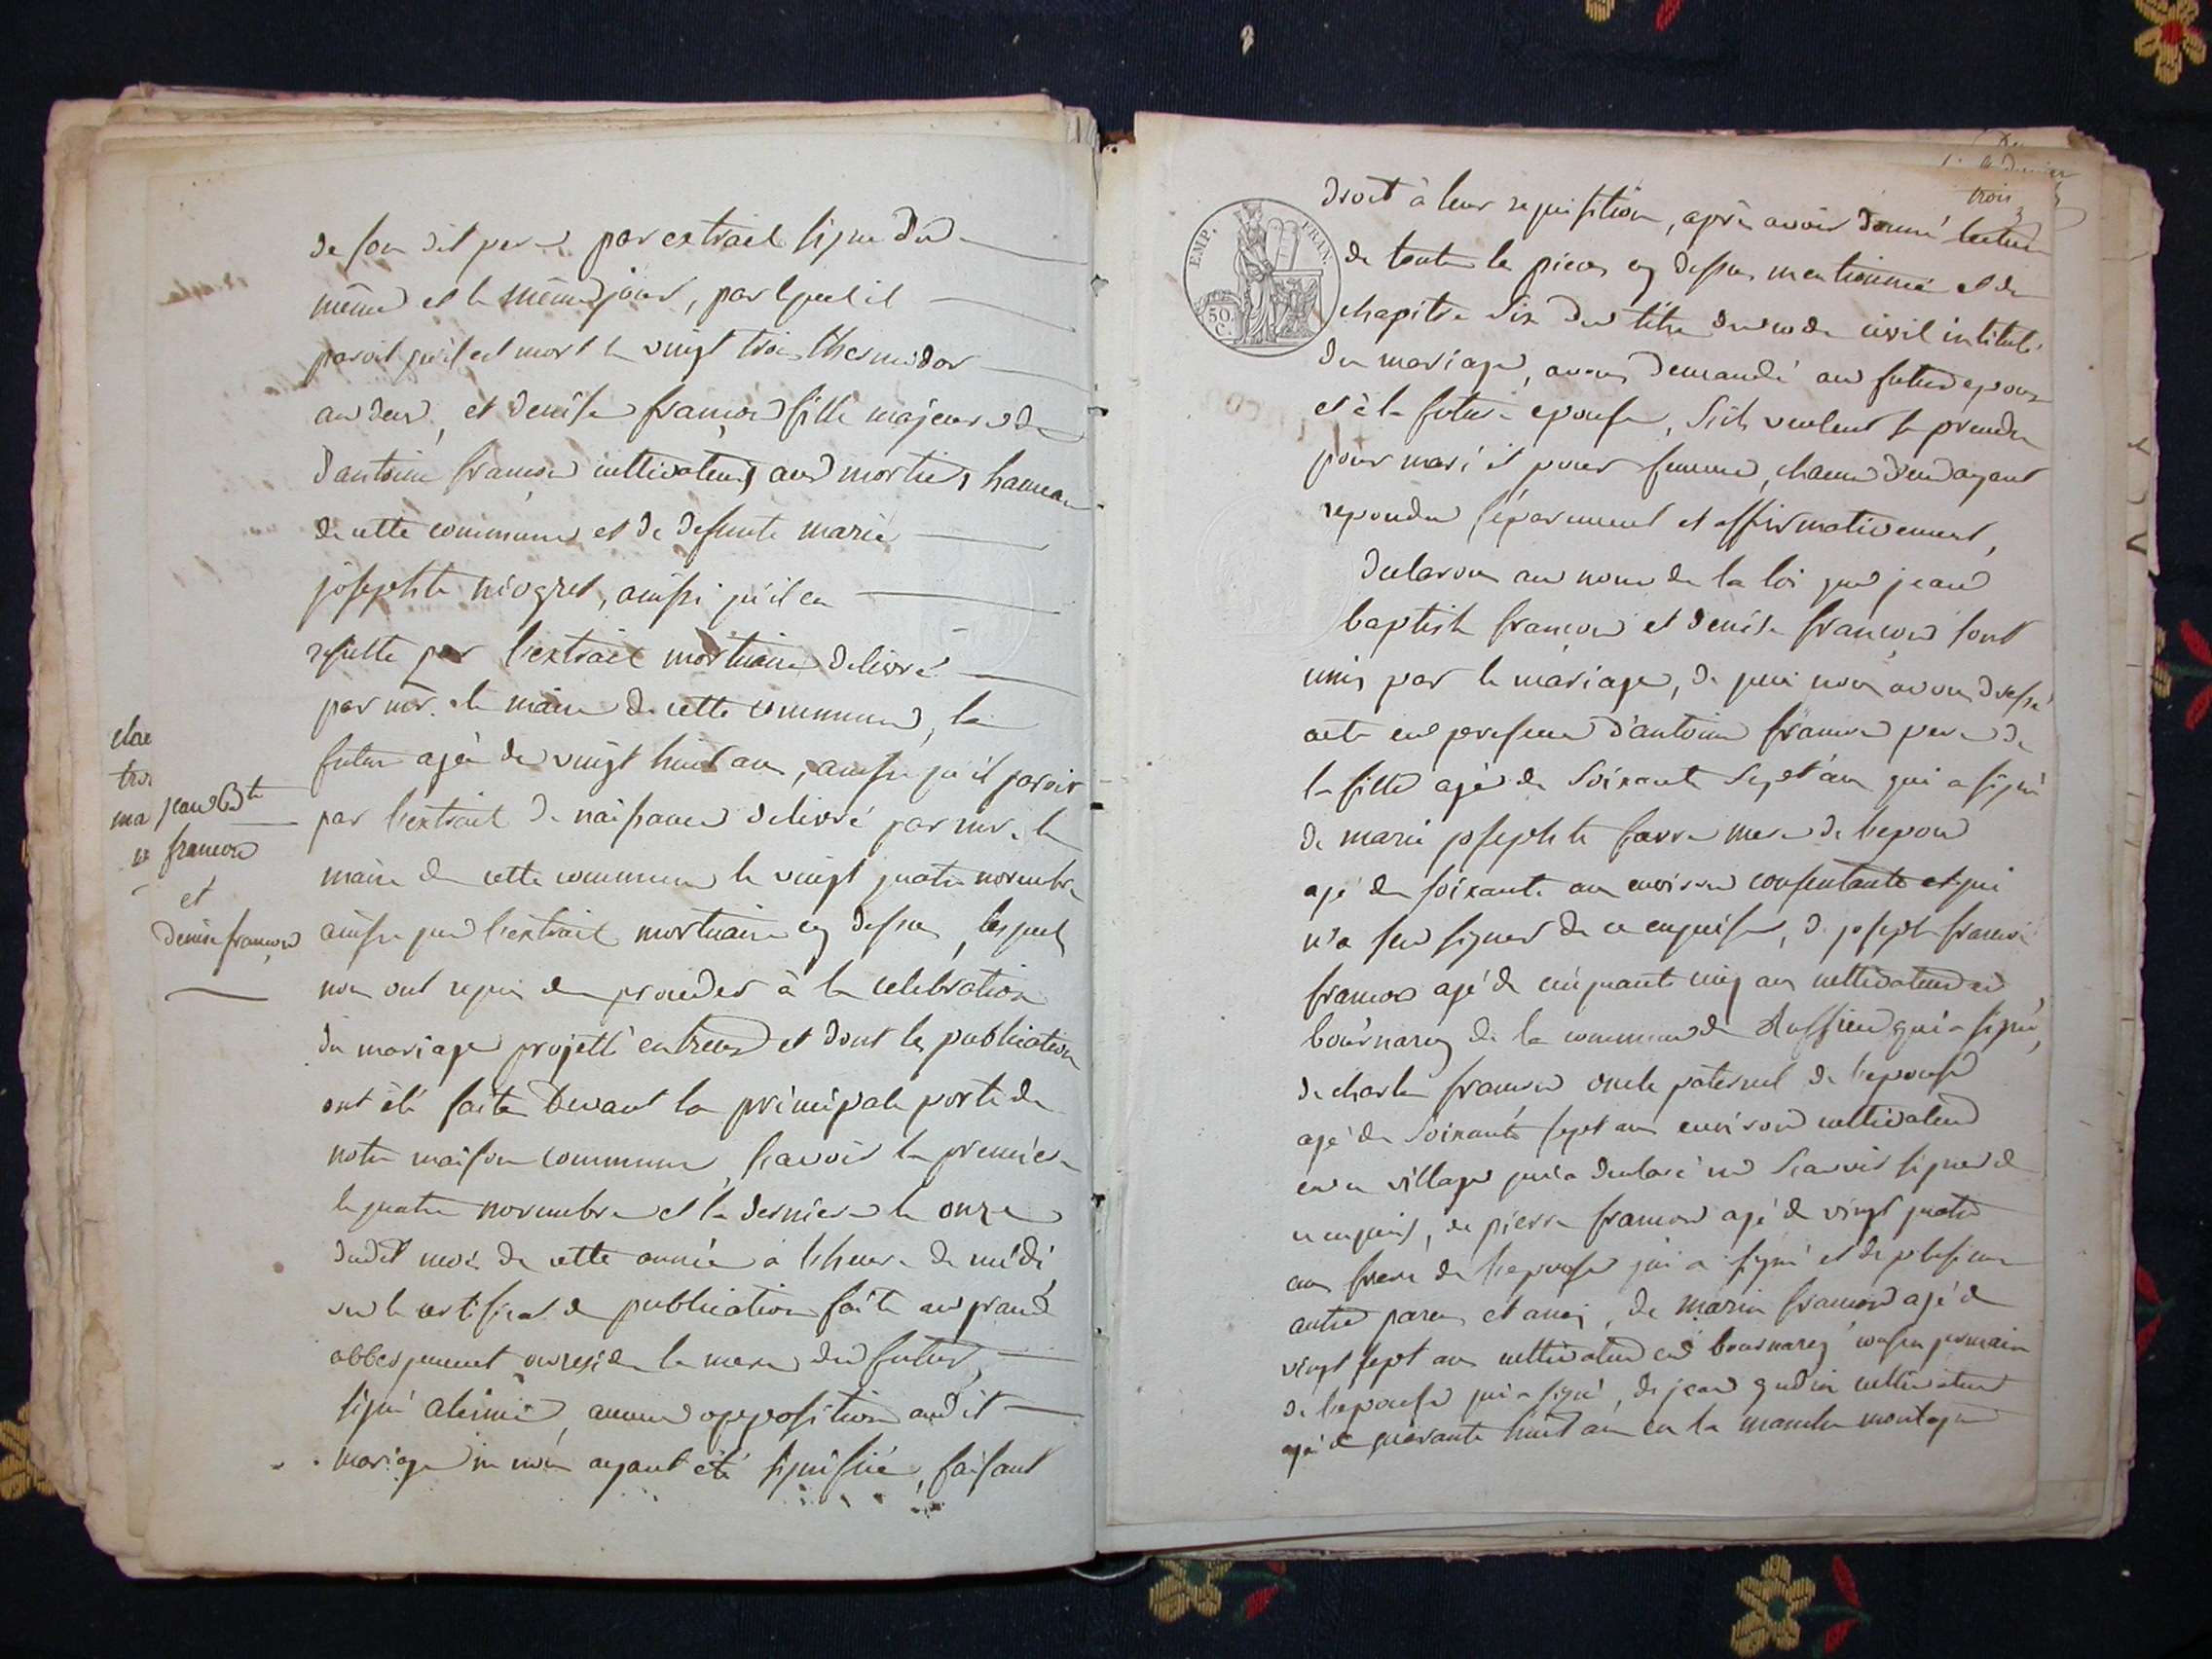 de son dit pere par extrait signe du
même et le même jour, par lquel il
paroit qu'il est mort le vingt trois thermidor
an deux, et denise françon fille majeure de
d'antoine françon cultivateur aux mortier hameau
de cette commune et de defunte marie
josephte niogret, ainssi qu'il en
resulte par l'extrait mortuaire delivré
par mr. le maire de cette commune, la
future agée de vingt huit ans, ainssi qu'il paroit
par l'extrait de naissance delivré par mr. le
maire de cette commune le vingt quatre novembre
ainssi que l'extrait mortuaire cy dessus, lesquels
nous ont requis de proceder à la celebration
du mariage projetté entreux et dont les publications
ont été faites devant la principale porte de
notre maison commune, scavoir la premiere
le quatre novembre et la derniere le onze
dudit mois de cette année a l'heure de midi,
vu le certificat de publication faite au grand
abbergement ou reside la mere du futur,
signé aleimé, aucune oppposition audit
mariage ne nous ayant été signifiée, faisant
jean Bte
françon
et
denise françon
trois
EMP. FRAN.
50 C.
droit à leur requisition, après avoir donné lecture
de toute les pieces cy dessus mentionnée et du
chapitre six du titre du code civil intitulé
du mariage, avons demandé au futur epoux
et à la future epouse, s'ils veulent se prendre
pour mari et pour femme, chacun d'eux ayant
repondu séparement et affirmativement,
declarons au nom de la loi que jean
baptiste françon et denise françon sont
unis par le mariage, de quoi nous avons dressé
acte en presence d'antoine françon pere de
la fille agé de soixante sept ans qui a signé
de marie josephte favre mere de l'epoux
agé de soixante ans environ consentante et qui
n'a seu signer de ce enquise, de joseph françois
françon agé de cinquante cinq ans cultivateur en
bournarey de la commune de Ruffieu qui a signé,
de charles françon oncle paternel de l'epouse
agé de soixante sept ans environ cultivateur
en ce village qui a declaré ne scavoir signer de
ce enquis, de pierre françon agé de vingt quatre
ans frere de l'epouse qui a signé et de plusieurs
autre parens et amis, de marin françon agé de
vingt sept ans cultivateur en bournarey cousin germain
de l'epouse qui a signé, de jean gudin cultivateur
agé de quarante huit ans en la manche montagne